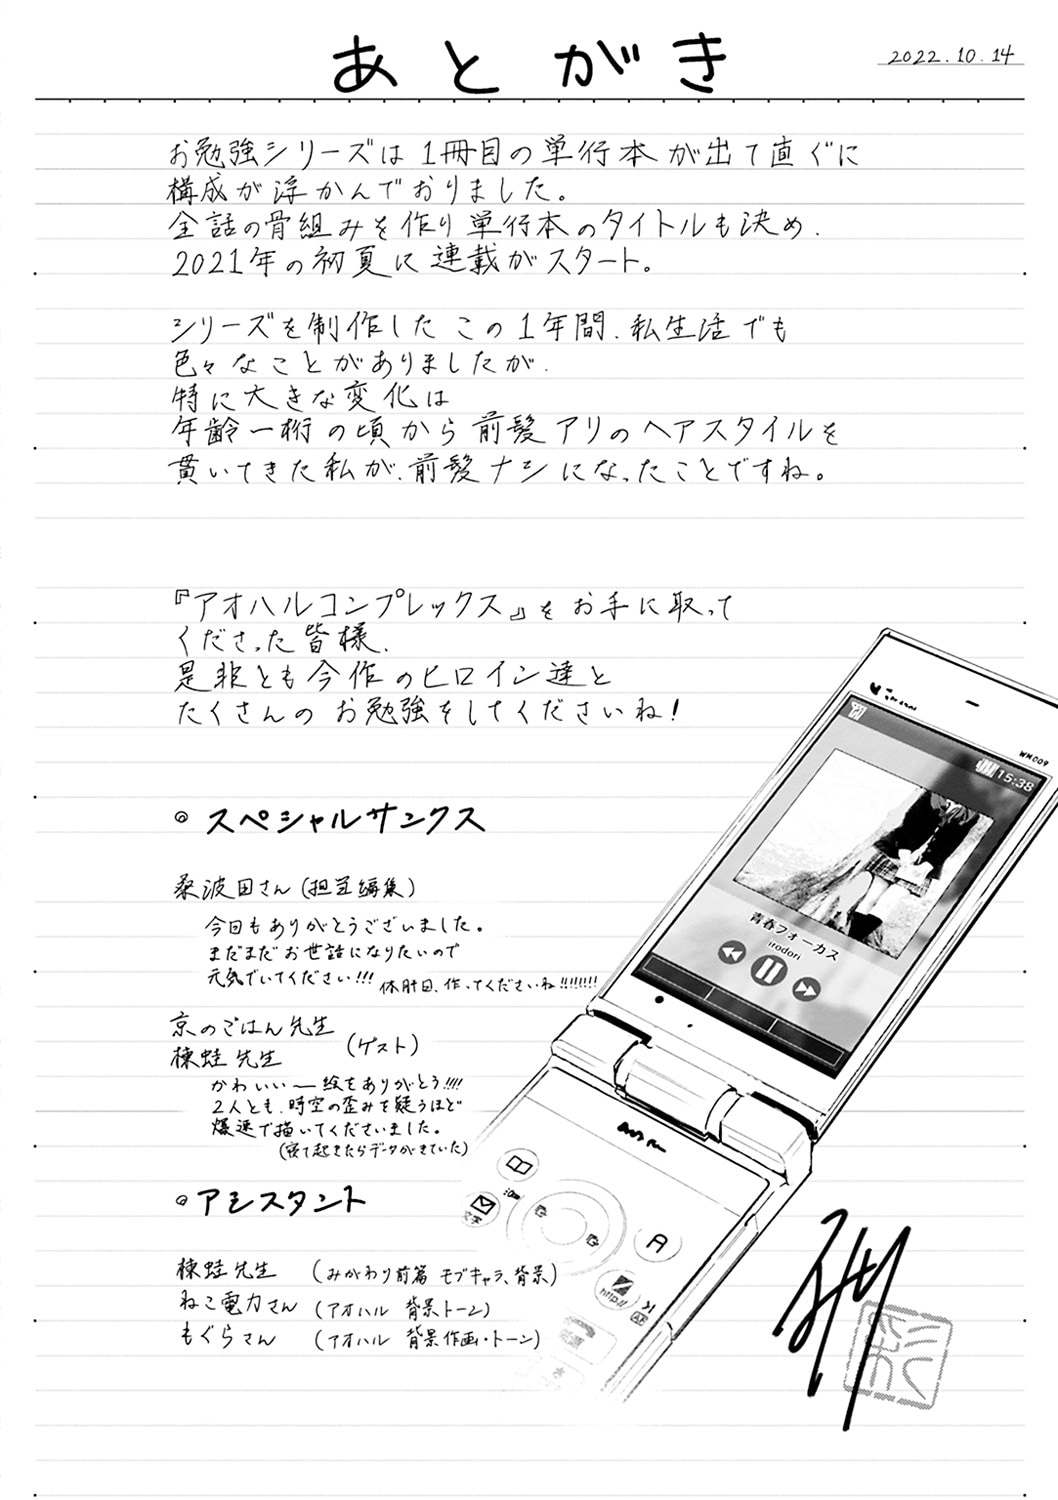 あとがき
2022.10.14
お勉強シリーズは1冊目の単行本が出て直ぐに
構成が浮かんでおりました。
全話の骨組みを作り単行本のタイトルも決め、
2021年の初夏に連載がスタート。
シリーズを制作したこの1年間、私生活でも
色々なことがありましたが、
特に大きな変化は
年齢一桁の頃から前髪アリのヘアスタイルを
貫いてきた私が、前髪ナシになったことですね。
『アオハルコンプレックス』をお手に取って
くださった皆様、
是非とも今作のヒロイン達と
たくさんのお勉強をしてくださいね!
◎スペシャルサンクス
桑波田さん(担当編集)
今日もありがとうございました。
まだまだお世話になりたいので
元気でいてください!!! 休肝日、作ってくださいね!!!!!!!!
京のごはん先生
楝蛙先生
(ゲスト)
かわいいー絵をありがとう!!!!
2人とも、時空の歪みを疑うほど
爆速で描いてくださいました。
(寝て起きたらデータがきていた)
◎アシスタント
楝蛙先生 (みがわり前篇 モブキャラ、背景)
ねこ電力さん (アオハル 背景トーン)
もぐらさん (アオハル 背景作画・トーン)
WM009
15:38
青春フォーカス
irodori
文字
A
http://